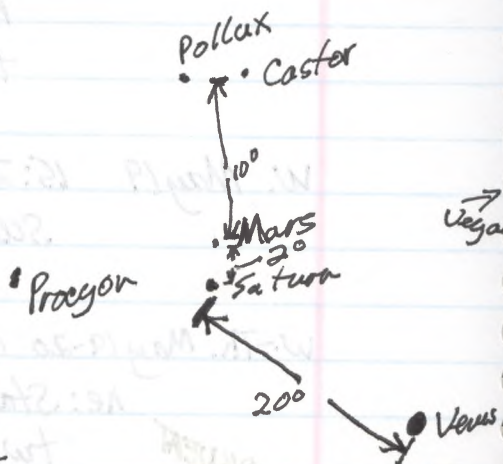 Pollux
Castor
10°
Mars
Vega
2°
Saturn
Procyon
20°
Venus